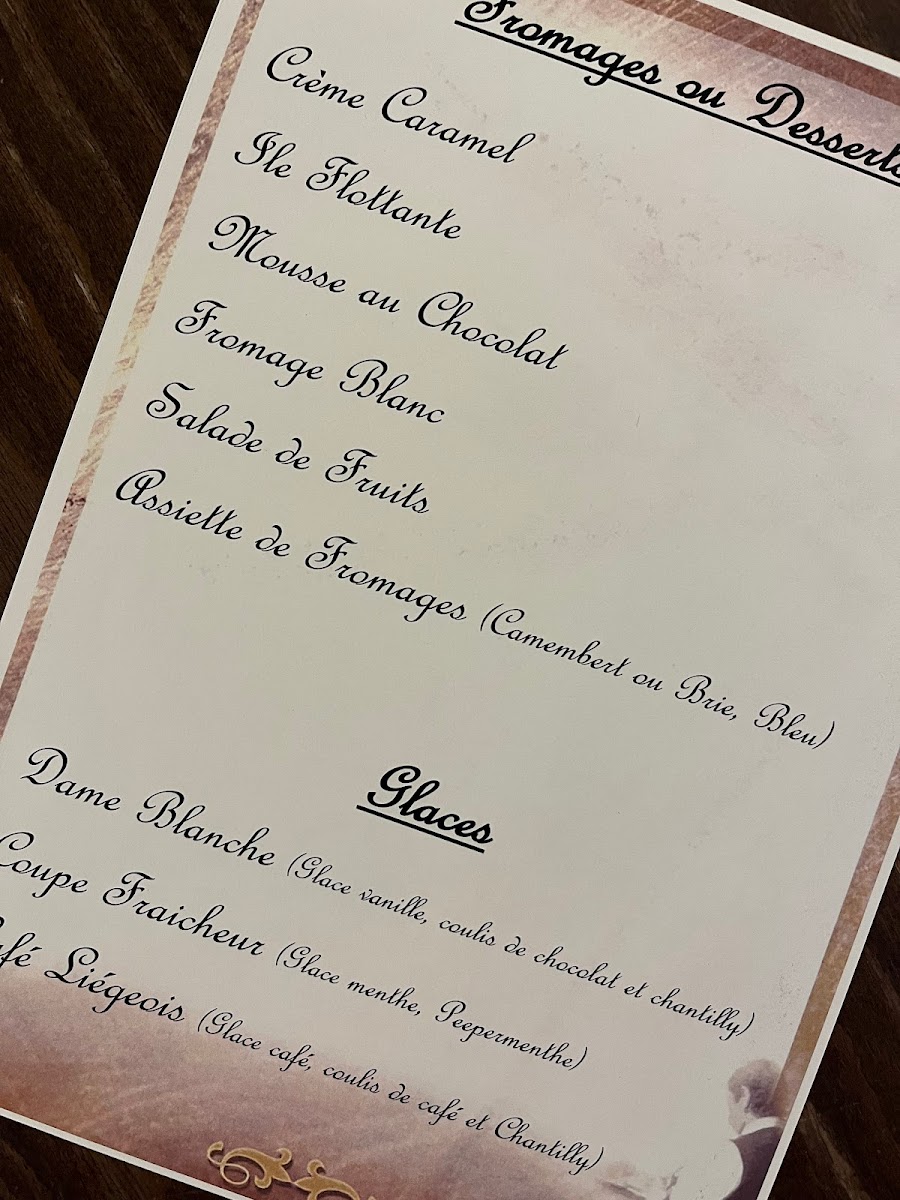 Fromages ou Desserts
Crème Caramel
Ile Flottante
Mousse au Chocolat
Fromage Blanc
Salade de Fruits
Assiette de Fromages (Camembert ou Brie, Bleu)
Glaces
Dame Blanche (Glace vanille, coulis de chocolat et chantilly)
Coupe Fraicheur (Glace menthe, Peepermenthe)
Café Liégeois (Glace café, coulis de café et Chantilly)